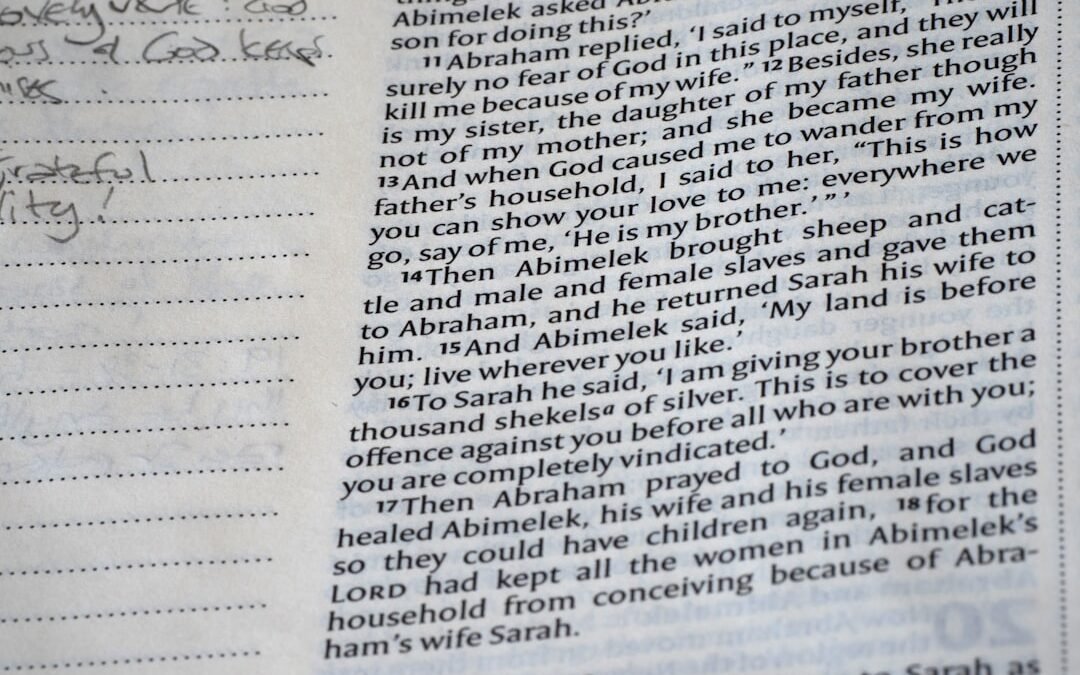 lovely verse! God
& God keeps
grateful
Abimelek asked
son for doing this?'
11 Abraham replied, 'I said to myself,
surely no fear of God in this place, and they will
kill me because of my wife." 12 Besides, she really
is my sister, the daughter of my father though
not of my mother; and she became my wife.
13 And when God caused me to wander from my
father's household, I said to her, "This is how
you can show your love to me: everywhere we
go, say of me, 'He is my brother.' " '
14 Then Abimelek brought sheep and cat-
tle and male and female slaves and gave them
to Abraham, and he returned Sarah his wife to
him. 15 And Abimelek said, 'My land is before
you; live wherever you like.'
16 To Sarah he said, 'I am giving your brother a
thousand shekels a of silver. This is to cover the
offence against you before all who are with you;
you are completely vindicated.'
17 Then Abraham prayed to God, and God
healed Abimelek, his wife and his female slaves
so they could have children again, 18 for the
LORD had kept all the women in Abimelek's
household from conceiving because of Abra-
ham's wife Sarah.
to Sarah as